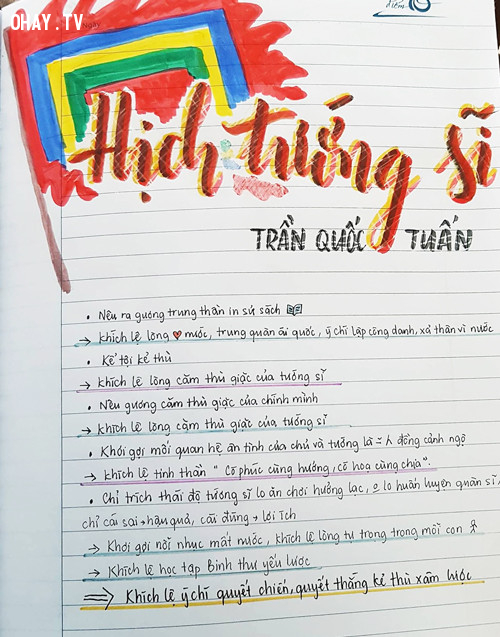 OHAY.TV
Ngày
điểm
Hịch tướng sĩ
TRẦN QUỐC TUẤN
• Nêu ra gương trung thần in sử sách
→ khích lệ lòng ♥ nước, trung quân ái quốc, ý chí lập công danh, xả thân vì nước
• Kể tội kẻ thù
→ khích lệ lòng căm thù giặc của tướng sĩ
• Nêu gương căm thù giặc của chính mình
→ khích lệ lòng căm thù giặc của tướng sĩ
• Khơi gợi mối quan hệ ân tình của chủ và tướng là = người đồng cảnh ngộ
→ khích lệ tinh thần " Có phúc cùng hưởng, có họa cùng chịu".
• Chỉ trích thái độ tướng sĩ lo ăn chơi hưởng lạc, lo huấn luyện quân sĩ,
chỉ cái sai → hậu quả, cái đúng → lợi ích
→ Khơi gợi nỗi nhục mất nước, khích lệ lòng tự trọng trong mỗi con
→ Khích lệ học tập Binh thư yếu lược
⇒ Khích lệ ý chí quyết chiến, quyết thắng kẻ thù xâm lược